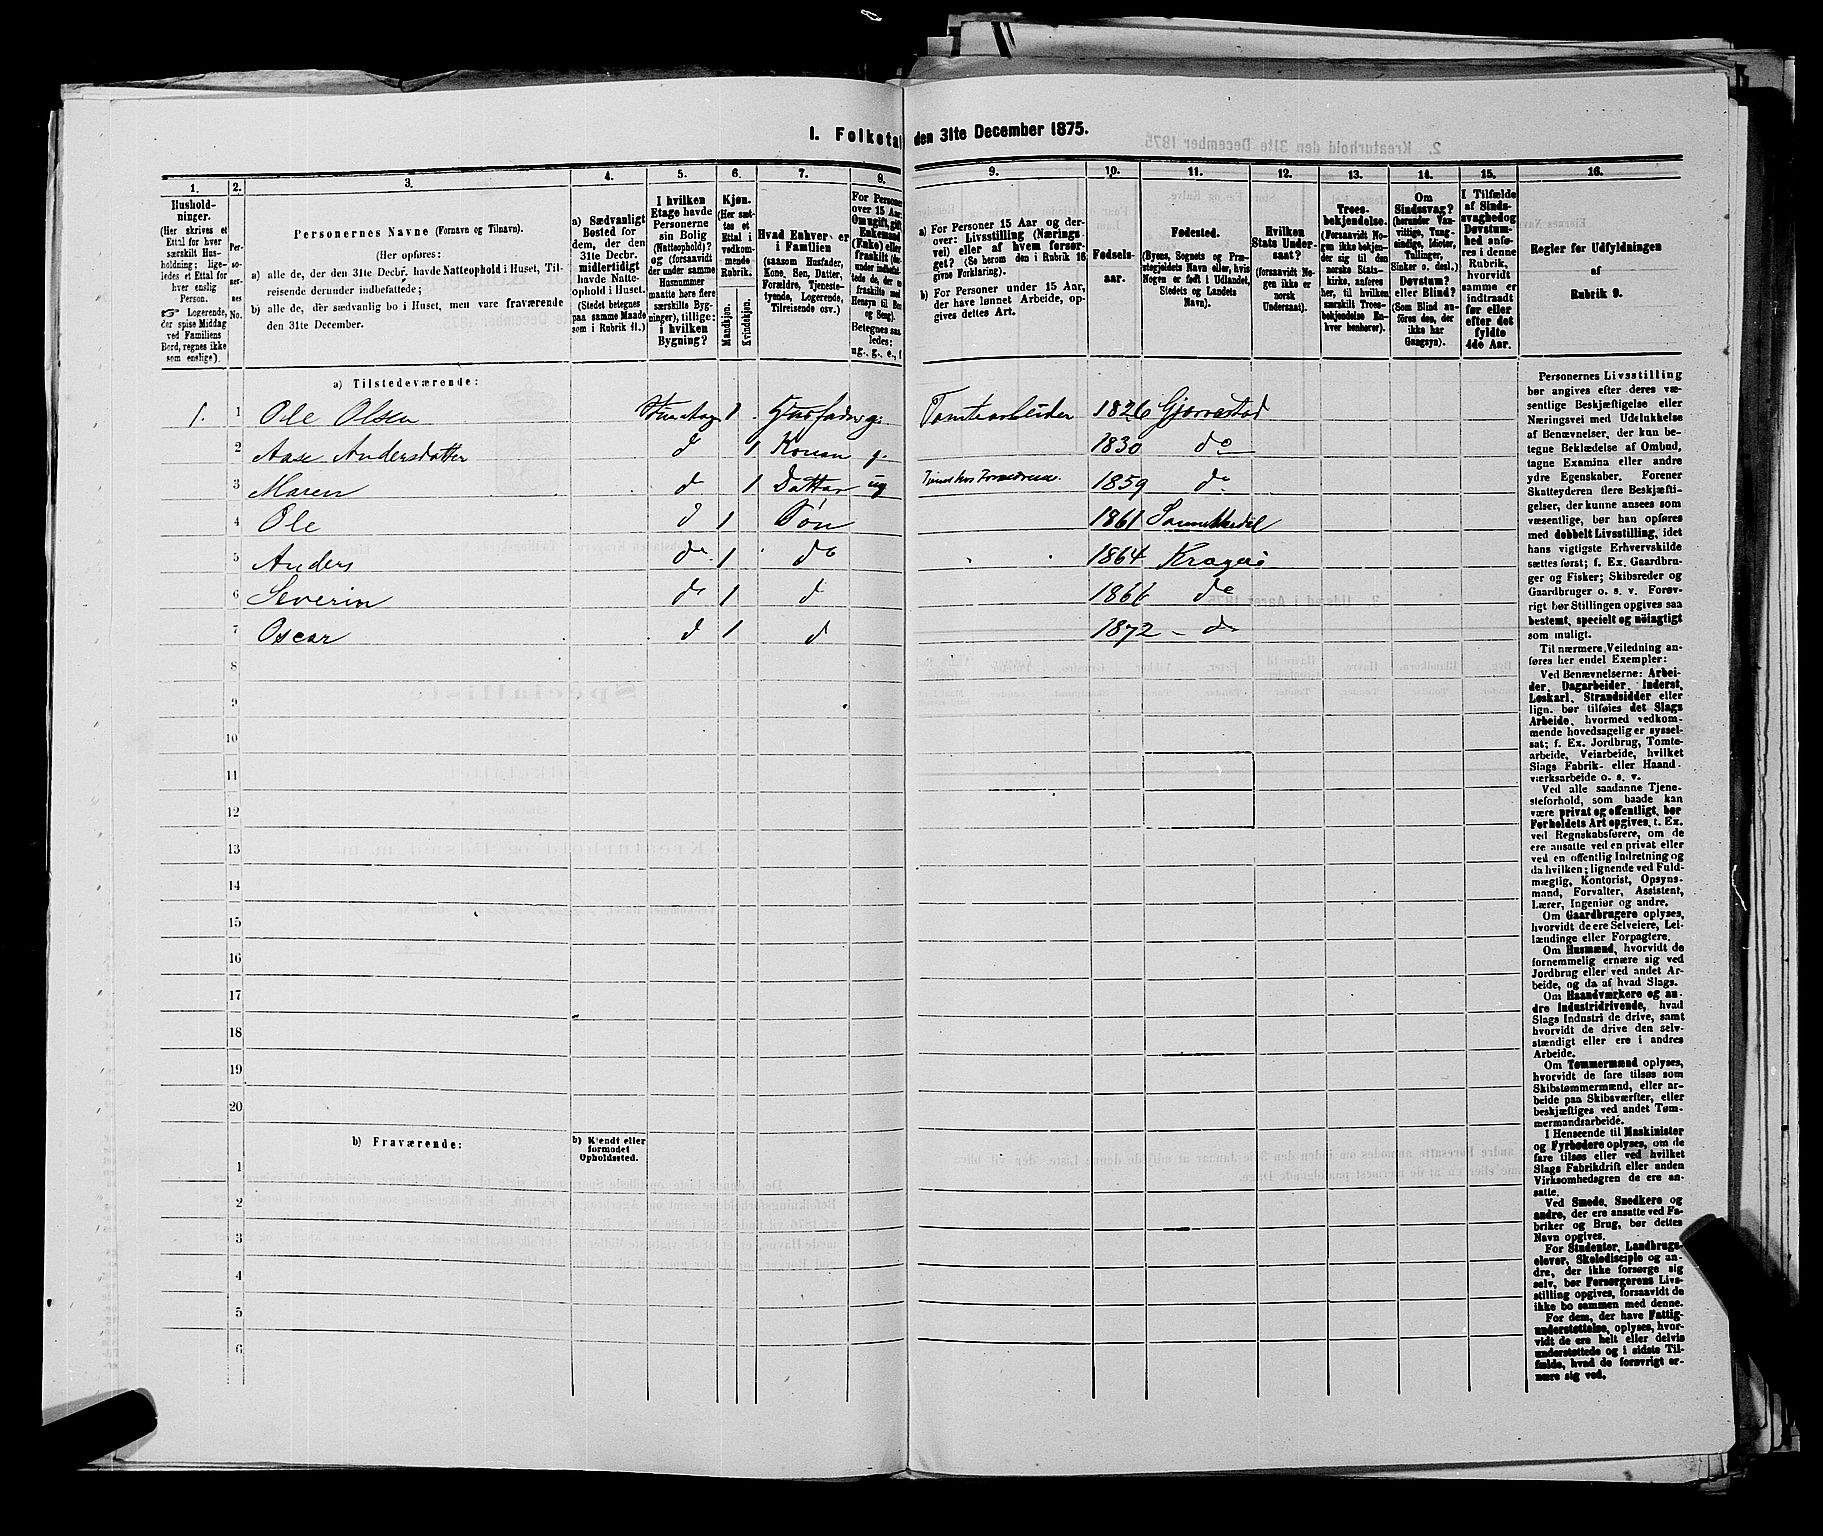 I. Folketal den 31te December 1875.
1. 2. 3. 4. 5. 6. 7. 8. 9. 10. 11. 12. 13. 14. 15. 16.
Hushold-
ninger.
(Her skrives et
Ettal for hver
særskilt Hus-
holdning; lige-
ledes et Ettal for
hver enslig
Person.
☞ Logerende,
der spise Middag
ved Familiens
Bord, regnes ikke
som enslige).
Per-
so-
ner-
nes
No.
Personernes Navne (Fornavn og Tilnavn).
(Her opføres:
a) alle de, der den 31te Decbr. havde Natteophold i Huset, Til-
reisende derunder indbefattede;
b) alle de, der sædvanlig bo i Huset, men vare fraværende
den 31te December.
a) Sædvanligt
Bosted for
dem, der den
31te Decbr.
midlertidigt
havde Natte-
ophold i Huset.
(Stedet betegnes
paa samme Maade
som i Rubrik 11.)
I hvilken
Etage havde
Personerne
sin Bolig
(Natteophold)?
og (forsaavidt
der under samme
Husnummer
maatte høre flere
særskilte Byg-
ninger), tillige:
i hvilken
Bygning?
Kjøn.
(Her sæt-
tes et
Ettal i
vedkom-
mende
Rubrik.
Mandkjøn.
Kvindekjøn.
Hvad Enhver er
i Familien
(saasom Husfader,
Kone, Søn, Datter,
Forældre, Tjeneste-
tyende, Logerende,
Tilreisende osv.)
For Personer
over 15 Aar:
Om ugift, gift,
Enkemand
(Enke) eller
fraskilt
Betegnes saa-
ledes:
ug., g., e., f.
a) For Personer 15 Aar og der-
over: Livsstilling (Nærings-
vei) eller af hvem forsør-
get? (Se herom den i Rubrik 16
givne Forklaring).
b) For Personer under 15 Aar,
der have lønnet Arbeide, op-
gives dettes Art.
Fødsels-
aar.
Fødested.
(Byens, Sognets og Præ-
stegjeldets Navn eller, hvis
Nogen er født i Udlandet,
Stedets og Landets
Navn).
Hvilken
Stats Under-
saat?
(forsaavidt No-
gen ikke er
norsk
Undersaat).
Troes-
bekjendelse.
(Forsaavidt No-
gen ikke bekjen-
der sig til den
norske Stats-
kirke, anføres
her, til hvilken
særskilt Troes-
bekjendelse En-
hver henhører).
Om
Sindssvag?
(herunder Van-
vittige, Tung-
sindige, Idioter,
Tullinger,
Sinker o. desl.)
Døvstum?
eller Blind?
(Som Blind an-
føres den, der
ikke har
Gangsyn).
I Tilfælde
af Sinds-
svaghed og
Døvstum-
hed anfø-
res i denne
Rubrik,
hvorvidt
samme er
indtraadt
før eller
efter det
fyldte
4de Aar.
Regler for Udfyldningen
af
Rubrik 9.
a) Tilstedeværende:
1. 1 Ole Olsen 1 Husfader g. Tomtearbeider 1826 Gjerrestad
2 Aase Andersdatter d 1 Konen g. 1830 do
3 Maren d 1 Datter ug 1859 do
4 Ole d 1 Søn 1861 Sannikedal
5 Anders do 1 do 1864 Kragerø
6 Severin do 1 d 1866 do
7 Oscar d 1 d 1872 do
8
9
10
11
12
13
14
15
16
17
18
19
20
b) Fraværende:
b) Kjendt eller
formodet
Opholdssted.
1
2
3
4
5
6
Personernes Livsstilling
bør angives efter deres væ-
sentlige Beskjæftigelse eller
Næringsvei med Udelukkelse
af Benævnelser, der kun be-
tegne Beklædelse af Ombud,
tagne Examina eller andre
ydre Egenskaber. Forener
Skatteyderen flere Beskjæfti-
gelser, der kunne ansees som
væsentlige, bør han opføres
med dobbelt Livsstilling, idet
hans vigtigste Erhvervskilde
sættes først; f. Ex. Gaardbru-
ger og Fisker; Skibsreder og
Gaardbruger o. s. v. Forøv-
rigt bør Stillingen opgives saa
bestemt, specielt og nöiagtigt
som muligt.
Til nærmere Veiledning an-
føres her endel Exempler:
Ved Benævnelserne: Arbei-
der, Dagarbeider, Inderst,
Løskarl, Strandsidder eller
lign. bør tilføies det Slags
Arbeide, hvormed vedkom-
mende hovedsagelig er syssel-
sat; f. Ex. Jordbrug, Tomte-
arbeide, Veiarbeide, hvilket
Slags Fabrik- eller Haand-
værksarbeide o. s. v.
Ved alle saadanne Tjene-
steforhold, som baade kan
være privat og offentligt, bør
Forholdets Art opgives, t. Ex.
ved Regnskabsførere, om de
ere ansatte ved en privat eller
ved en offentlig Indretning og
da hvilken; lignende ved Fuld-
mægtig, Kontorist, Opsyns-
mand, Forvalter, Assistent,
Lærer, Ingeniør og andre.
Om Gaardbrugere oplyses,
hvorvidt de ere Selveiere, Lei-
lændinge eller Forpagtere.
Om Husmænd, hvorvidt de
fornemmelig ernære sig ved
Jordbrug eller ved andet Ar-
beide, og da af hvad Slags.
Om Haandværkere og an-
dre industridrivende, hvad
Slags Industri de drive, samt
hvorvidt de drive den selv-
stændigt eller ere i andres
Arbeide.
Om Tømmermænd oplyses,
hvorvidt de fare tilsøs som
Skibstømmermænd, eller ar-
beide paa Skibsværfter, eller
beskjæftiges ved andet Tøm-
mermandsarbeide.
I Henseende til Maskinister
og Fyrbødere oplyses, om de
fare tilsøs eller ved hvilket
Slags Fabrikdrift eller anden
Virksomhedsgren de ere an-
satte.
Ved Smede, Snedkere og
andre, der ere ansatte ved Fa-
briker og Brug, bør dettes
Navn opgives.
For Studenter, Landbrugs-
elever, Skoledisciple og an-
dre, der ikke forsørge sig
selv, bør Forsørgerens Livs-
stilling opgives, forsaavidt de
ikke bo sammen med denne.
For dem, der have Fattig-
understøttelse, oplyses, hvor-
vidt de ere helt eller delvis
understøttede og i sidste Til-
fælde, hvad de forøvrigt er-
nære sig ved.